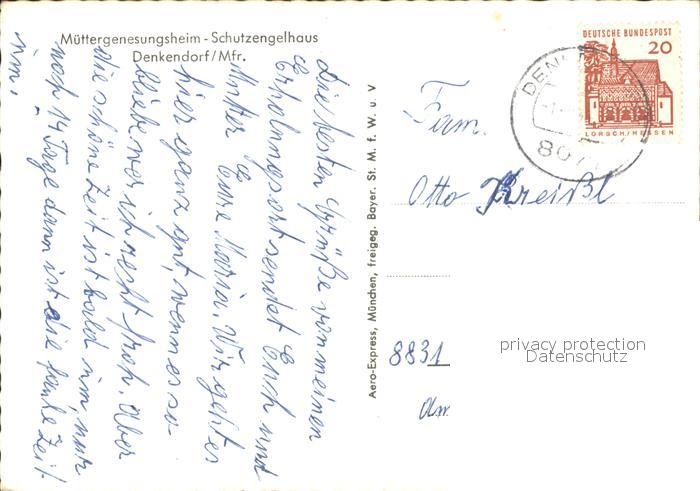 Müttergenesungsheim - Schutzengelhaus
Denkendorf/Mfr.
Die besten Grüße von meinen
Erholungsort sendet Euch und
Mutter Eure Maria. Mir geht es
hier ganz gut, wenn es so
bliebe wär ich recht froh. Aber
die schöne Zeit ist bald um, nur
noch 14 Tage dann ist die faule Zeit
um.
Aero-Express, München, freigeg. Bayer. St. M. f. W. u. V
DEUTSCHE BUNDESPOST
20
LORSCH/HESSEN
DEN
807
Fam.
Otto Kreißl
8831
privacy protection
Datenschutz